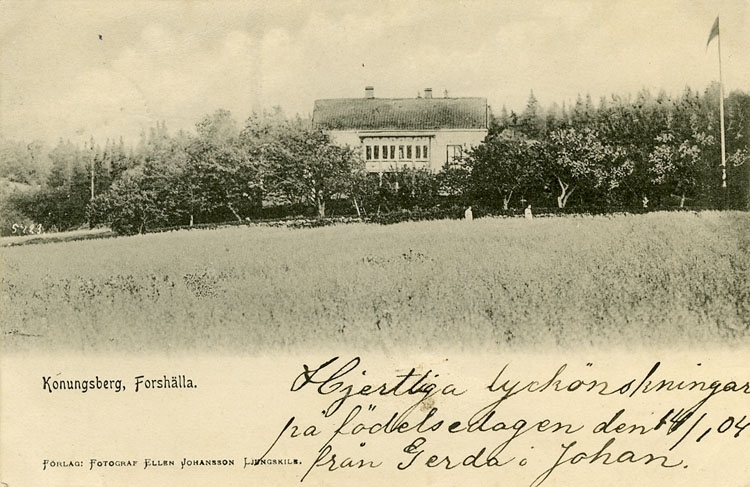 5723
Konungsberg, Forshälla.
Hjertliga lyckönskningar
på födelsedagen den 14/1, 04
från Gerda i Johan.
FÖRLAG: FOTOGRAF ELLEN JOHANSSON LJUNGSKILE.